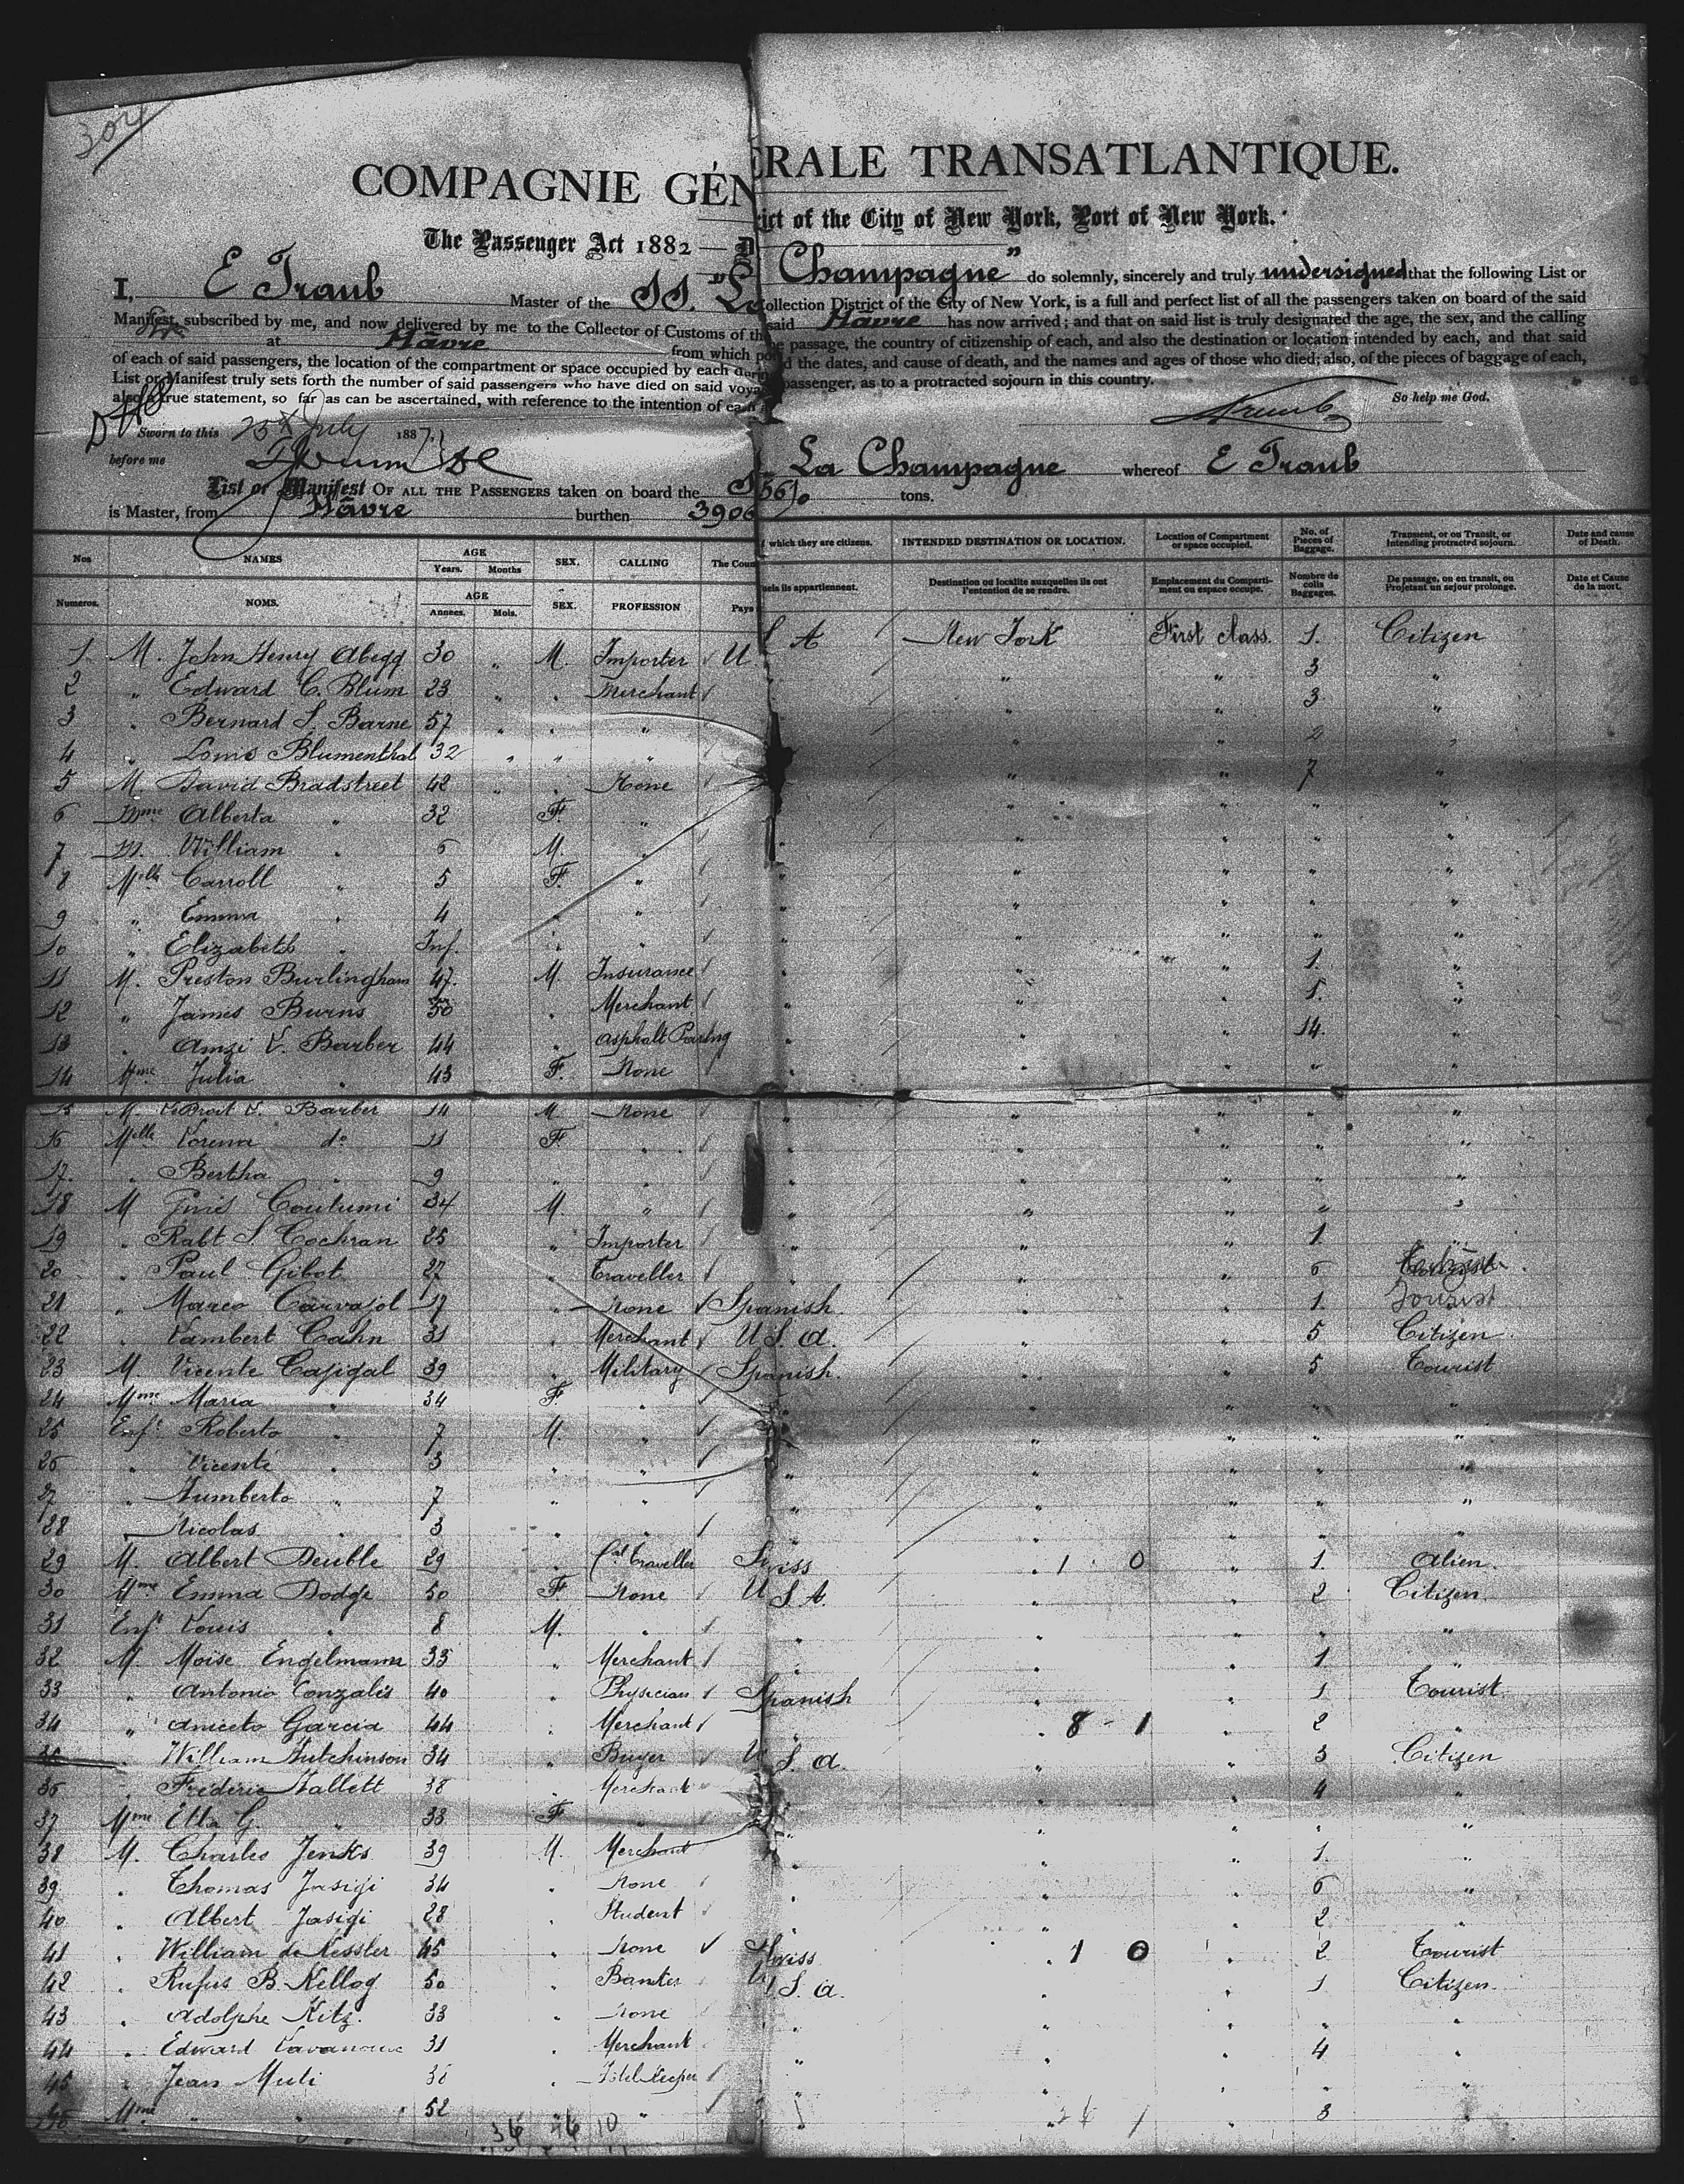 304
COMPAGNIE GÉNÉRALE TRANSATLANTIQUE.
The Passenger Act 1882 — D rict of the City of New York, Port of New York.
I, E Traub Master of the SS. "La Champagne" do solemnly, sincerely and truly undersigned that the following List or
Manifest, subscribed by me, and now delivered by me to the Collector of Customs of th Collection District of the City of New York, is a full and perfect list of all the passengers taken on board of the said
at Hâvre from which po said Hâvre has now arrived; and that on said list is truly designated the age, the sex, and the calling
of each of said passengers, the location of the compartment or space occupied by each during the passage, the country of citizenship of each, and also the destination or location intended by each, and that said
List or Manifest truly sets forth the number of said passengers who have died on said voya d the dates, and cause of death, and the names and ages of those who died; also, of the pieces of baggage of each,
also a true statement, so far as can be ascertained, with reference to the intention of each passenger, as to a protracted sojourn in this country.
So help me God.
Traub
Sworn to this 25th July 1887.
before me
List or Manifest OF ALL THE PASSENGERS taken on board the S La Champagne whereof E Traub
is Master, from Hâvre burthen 3906 56/0 tons.
Nos NAMES AGE Years. Months SEX. CALLING The Coun which they are citizens. INTENDED DESTINATION OR LOCATION. Location of Compartment or space occupied. No. of Pieces of Baggage. Transient, or on Transit, or Intending protracted sojourn. Date and cause of Death.
Numeros. NOMS. AGE Annees. Mois. SEX. PROFESSION Pays uels ils appartiennent. Destination ou localite auxquelles ils ont l'entention de se rendre. Emplacement du Compartiment ou espace occupe. Nombre de colis Baggages. De passage, ou en transit, ou Projetant un sejour prolonge. Date et Cause de la mort.
1 M. John Henry Abegg 30 " M. Importer U. S A New York First class. 1. Citizen
2 " Edward C. Blum 23 " " Merchant " " 3 "
3 " Bernard S. Barne 57 " " " " " 3 "
4 " Louis Blumenthal 32 " " " " " 2 "
5 M. David Bradstreet 42 " " None " " 7 "
6 Mme Alberta " 32 F. " " " " "
7 M. William " 6 M. " " " " "
8 Melle Carroll " 5 F. " " " " "
9 " Emma " 4 " " " " " "
10 " Elizabeth " Inf. " " " " " "
11 M. Preston Burlingham 47. M. Insurance " " 1. "
12 " James Burns 50 " Merchant " " " 1. "
13 " Amzi L. Barber 44 " Asphalt Paving " " 14. "
14 Mme Julia " 43 F. None " " " "
15 M. LeDroit L. Barber 14 M None " " " "
16 Melle Lorena do 11 F. " " " " " "
17. " Bertha " 9 " " " " " " "
18 M 34 M. " " " " " "
19 " Robt S. Cochran 25 " Importer " " " 1 "
20 " Paul Gibot 27 " Traveller " " " 6
21 " Marco Carvajol 17 " None Spanish. " " 1. Tourist
22 " Lambert Cahn 31 " Merchant U S. a. " " 5 Citizen
23 M. Vicente Cajigal 39 " Military Spanish. " " 5 Tourist
24 Mme Maria " 34 F. " " " " " "
25 Enft Roberto " 7 M. " " " " " "
26 " Vicente " 3 " " " " " "
27 " Humberto " 7 " " " " " " "
28 Nicolas " 3 " " " " " "
29 M. Albert Deuble 29 " Cal Traveller Swiss " 1 0 " 1. Alien.
30 Mme Emma Dodge 50 F None U S A. " " 2 Citizen.
31 Enft Louis " 8 M. " " " " " "
32 M. Moise Engelmann 33 " Merchant " " " 1 "
33 " Antonio Conzalis 40 " Physician Spanish " " 1 Tourist
34 " Aniceto Garcia 44 " Merchant " " 8 - 1 " 2 "
35 " William Hutchinson 34 " Buyer U S. a. " " 3 Citizen
36 " Frederic Hallett 38 " Merchant " " 4 "
37 Mme Etta G. " 33 F " " " " " "
38 M. Charles Jenks 39 M. Merchant " " " 1. "
39 " Thomas Jasigi 34 " None " " " 6 "
40 " Albert Jasigi 28 " Student " " " 2 "
41 " William de Kessler 45 " None Swiss " 1 0 " 2 Tourist
42 " Rufus B. Kellog 50 " Banker U S. a. " 1 Citizen.
43 " Adolphe Kitz. 33 " None " " " " "
44 " Edward 31 " Merchant " " " 4 "
45 " Jean Muli " Hotel Keeper " " " " "
46 Mme " " 52 " " " 3 "
34 46 10